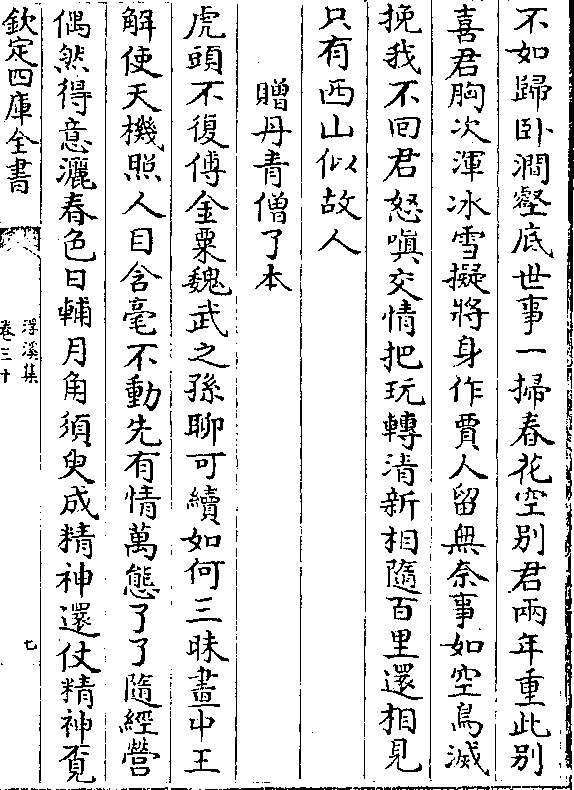 不如歸卧澗壑底世事一掃春花空别君兩年重此别
喜君胸次渾冰雪擬將身作賈人留無奈事如空鳥滅
挽我不回君怒嗔交情把玩轉清新相隨百里還相見
只有西山似故人
贈丹青僧了本
虎頭不復傅金粟魏武之孫聊可續如何三昧畫中王
解使天機照人目含毫不動先有情萬態了了隨經營
偶然得意灑春色日輔月角須臾成精神還仗精神覔
欽定四庫全書
浮溪集
卷三十
七